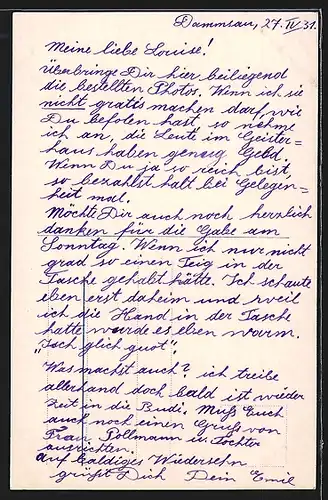 Dammsau, 27. IV 31.
Meine liebe Louise!
Überbringe Dir hier beiliegend
die bestellten Photos. Wenn ich sie
nicht gratis machen darf, wie
Du befolen hast, so nehme
ich an, die Leute im Geister=
haus haben genug Geld.
Wenn Du ja so reich bist,
so bezahlst halt bei Gelegen=
heit mal.
Möchte Dir auch noch herzlich
danken für die Gabe am
Sonntag. Wenn ich nur nicht
grad so einen Teig in der
Tasche gehabt hätte. Ich schaute
eben erst daheim und weil
ich die Hand in der Tasche
hatte wurde es eben warm.
"Isch glich guet".
Was machst auch? ich treibe
allerhand doch bald ist wieder
Zeit in die Budi. Muss Euch
auch noch einen Gruss von
Frau Pollmann u. Tochter
ausrichten.
Auf baldiges Wiedersehn
grüsst Dich Dein Emil